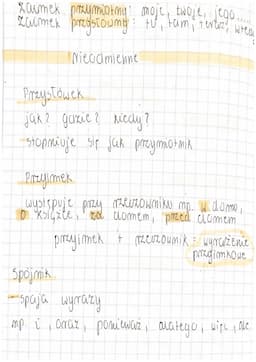 zaimek przymiotny: moje, twoje, jego...
zaimek przysłowny: tu, tam, teraz, wtedy
Nieodmienne
Przysłówek
jak? gdzie? kiedy?
-stopniuje się jak przymiotnik
Przyimek
występuje przy rzeczowniku np. w domu,
o książce, za domem, przed domem
przyimek + rzeczownik = wyrażenie
przyimkowe
Spójnik
-spaja wyrazy
np. i, oraz, ponieważ, dlatego, więc, ale